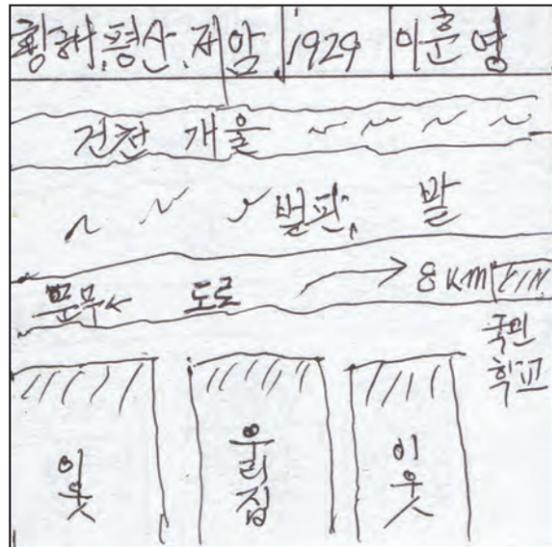 황해.평산.저암 1929 이훈영
건천 개울
벌판, 밭
문무← 도로 → 8 KM
국민
학교
이웃 우리집 이웃